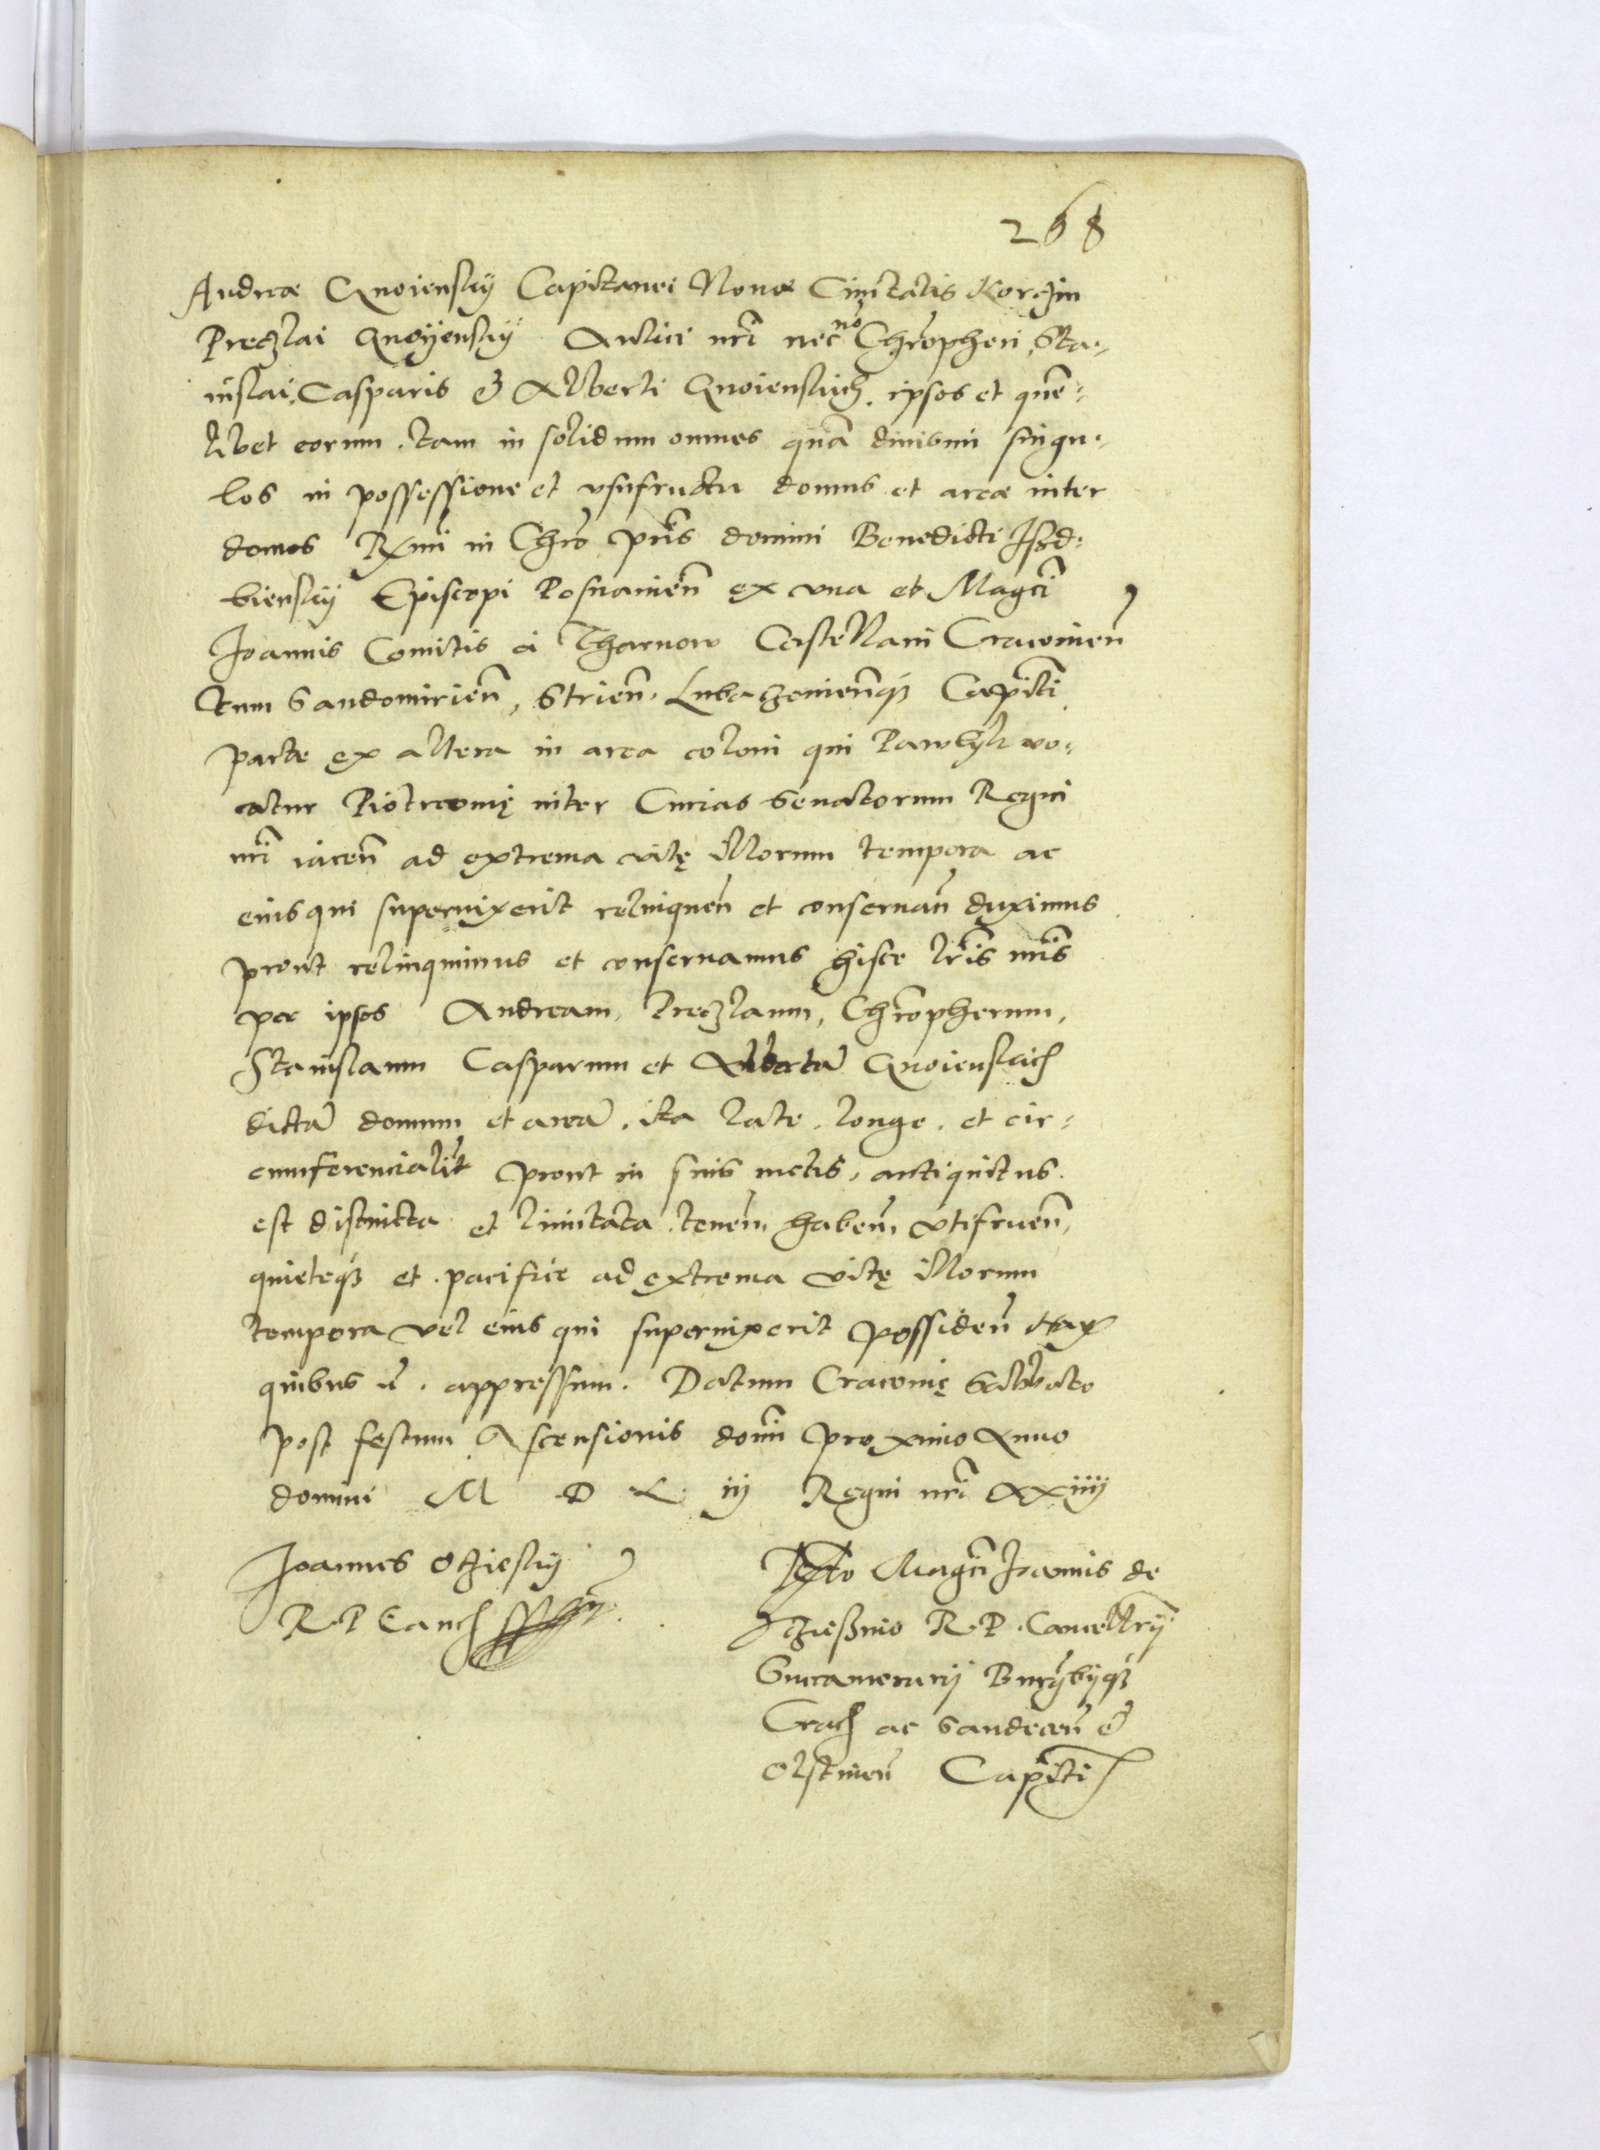 268
Andreæ Gnoiensky Capitanei Nouæ Ciuitatis Korczin
Preczlai Gnoÿensky Aulici nrĩ nec nõ Chrõpheri, Sta-
nislai, Casparis & Alberti Gnoienskich. ipsos et quẽ-
libet eorum. tam in solidum omnes quã diuisim singu-
los in possessione et vsufructu domus et areæ inter
domos Rẽmi in Chrõ pr̃is domini Benedicti Isd-
biensky Episcopi Posnanieñ ex vna et Magcĩ
Joannis Comitis ä Tharnow Castellani Cracouieñ
tum Sandomirieñ, Strieñ. Lubaczouieñq3 Capiti
parte ex altera in area coloni qui Parchÿli vo-
catur Piotrcouię inter Curias Senatorum Regni
nrĩ iaceñ ad extrema vitę illorum tempora ac
eius qui superuixerit relinqueñ et conseruañ duximus
prout relinquimus et conseruamus hisce lr̃is nr̃is
per ipsos Andream, Preczlaum, Chrõpherum,
Stanislaum Casparum et Albertũ Gnoienskich
dictã domum et areã. ita late. longe. et cir-
cumferencialit̃ prout in suis metis, antiquitus.
est distincta et limitata. teneñ. habeñ. vtifrueñ,
quieteq3 et. pacifice ad extrema vitę illorum
tempora vel eius qui superuixerit possideñ Har
quibus ñ. appressum. Datum Cracouię Sabbato
post festum Ascensionis domĩ proximo Anno
domini M D L iij Regni nrĩ xxiiij
Joannes Ocziesky
R. P. Canch sst
Rẽlo Magcĩ Joannis de
Oczieszino R. P. Cancellrij
Succamerarij Burgbijq3
Crach ac Sandeceñ &
Olstineñ Capiti